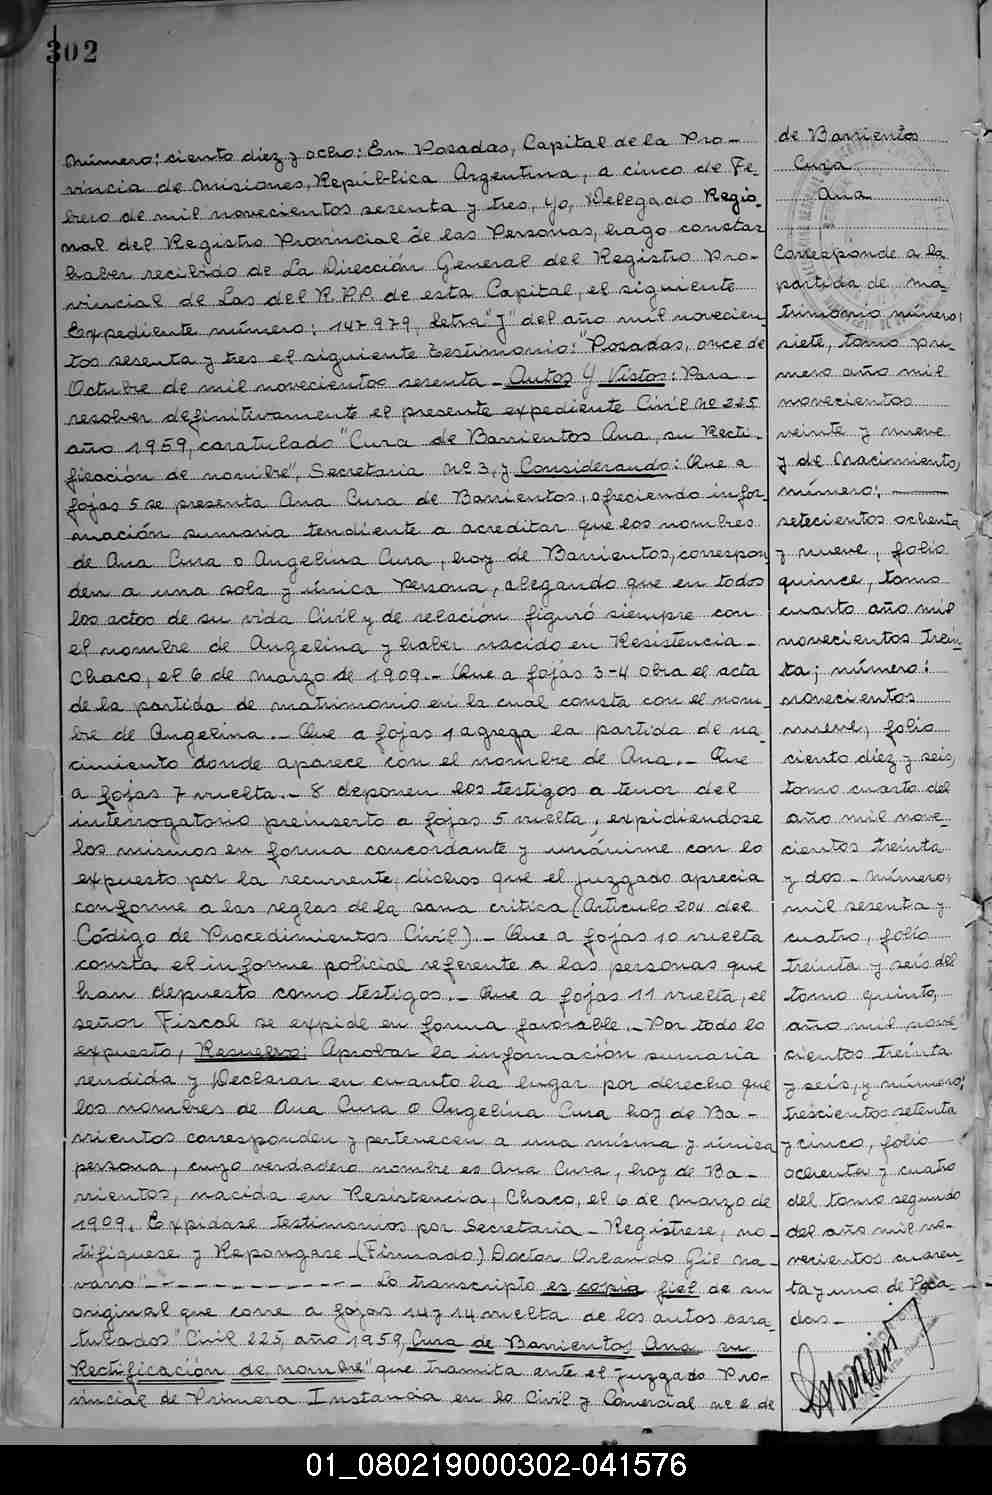 302
Número: ciento diez y ocho: En Posadas, Capital de la Pro-
vincia de Misiones, República Argentina, a cinco de Fe-
brero de mil novecientos sesenta y tres, yo, Delegado Regio-
nal del Registro Provincial de las Personas, hago constar
haber recibido de La Dirección General del Registro Pro-
vincial de Las del R.P.P. de esta Capital, el siguiente
Expediente número: 147979, letra "J" del año mil novecien-
tos sesenta y tres el siguiente testimonio: "Posadas, once de
Octubre de mil novecientos sesenta - Autos Y Vistos: Para
resolver definitivamente el presente expediente Civil Nº 225
año 1959, caratulado "Cura de Barrientos Ana, su Recti-
ficación de nombre", Secretaria Nº 3, y Considerando: Que a
fojas 5 se presenta Ana Cura de Barrientos, ofreciendo infor-
mación sumaria tendiente a acreditar que los nombres
de Ana Cura o Angelina Cura, hoy de Barrientos, correspon-
den a una sola y única Persona, alegando que en todos
los actos de su vida Civil y de relación figuró siempre con
el nombre de Angelina y haber nacido en Resistencia -
Chaco, el 6 de marzo de 1909.- Que a fojas 3-4 obra el acta
de la partida de matrimonio en la cual consta con el nom-
bre de Angelina.- Que a fojas 1 agrega la partida de na-
cimiento donde aparece con el nombre de Ana.- Que
a fojas 7 vuelta.- 8 deponen los testigos a tenor del
interrogatorio preinserto a fojas 5 vuelta, expidiendose
los mismos en forma concordante y unánime con lo
expuesto por la recurrente, dichos que el juzgado aprecia
conforme a las reglas de la sana critica (Articulo 204 del
Código de Procedimientos Civil).- Que a fojas 10 vuelta
consta el informe policial referente a las personas que
han depuesto como testigos.- Que a fojas 11 vuelta, el
señor Fiscal se expide en forma favorable.- Por todo lo
expuesto, Resuelvo: Aprobar la información sumaria
rendida y Declarar en cuanto ha lugar por derecho que
los nombres de Ana Cura o Angelina Cura hoy de Ba-
rrientos corresponden y pertenecen a una misma y única
persona, cuyo verdadero nombre es Ana Cura, hoy de Ba-
rrientos, nacida en Resistencia, Chaco, el 6 de marzo de
1909. Expidase testimonios por Secretaria - Registrese, no-
tifiquese y Repongase - (Firmado) Doctor Orlando Gil Na-
varro" - - - - - - - - - - - Lo transcripto es copia fiel de su
original que corre a fojas 14 y 14 vuelta de los autos cara-
tulados "Civil 225, año 1959, Cura de Barrientos Ana su
Rectificación de nombre" que tramita ante el juzgado Pro-
vincial de Primera Instancia en lo Civil y Comercial Nº 2 de
de Barrientos
Cura
Ana
Corresponde a la
partida de ma-
trimonio número:
siete, tomo pri-
mero año mil
novecientos
veinte y nueve
y de Nacimiento,
número:
setecientos ochenta
y nueve, folio
quince, tomo
cuarto año mil
novecientos trein-
ta; número:
novecientos
nueve, folio
ciento diez y seis,
tomo cuarto del
año mil nove-
cientos treinta
y dos - número:
mil sesenta y
cuatro, folio
treinta y seis del
tomo quinto,
año mil nove-
cientos treinta
y seis, y número:
trescientos setenta
y cinco, folio
ochenta y cuatro
del tomo segundo
del año mil no-
vecientos cuaren-
ta y uno de Posa-
das -
01_080219000302-041576